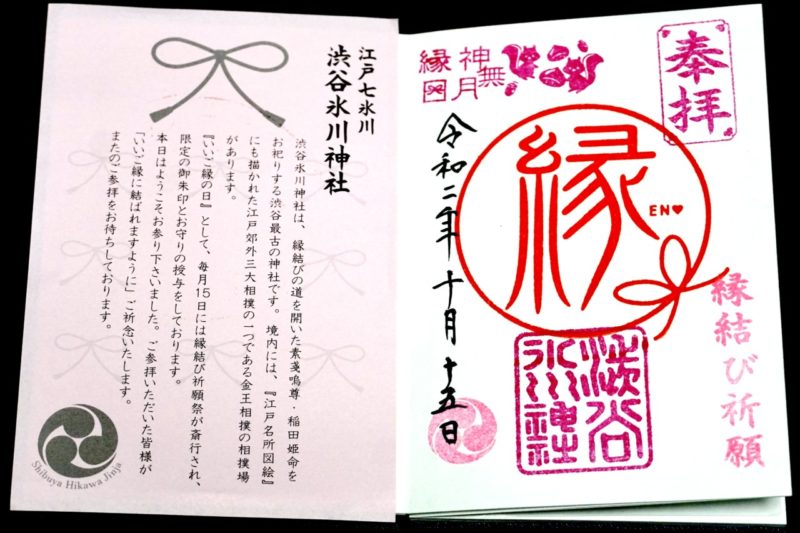 江戸七氷川
渋谷氷川神社
渋谷氷川神社は、縁結びの道を開いた素戔嗚尊・稲田姫命を
お祀りする渋谷最古の神社です。境内には、『江戸名所図絵』
にも描かれた江戸郊外三大相撲の一つである金王相撲の相撲場
があります。
『いいご縁の日』として、毎月15日には縁結び祈願祭が斎行され、
限定の御朱印とお守りの授与をしております。
本日はようこそお参り下さいました。ご参拝いただいた皆様が
「いいご縁に結ばれますように」ご祈念いたします。
またのご参拝をお待ちしております。
Shibuya Hikawa Jinja
奉拝
縁結び祈願
神無月
縁
縁
EN♥
澁谷
氷川神社
令和二年十月十五日